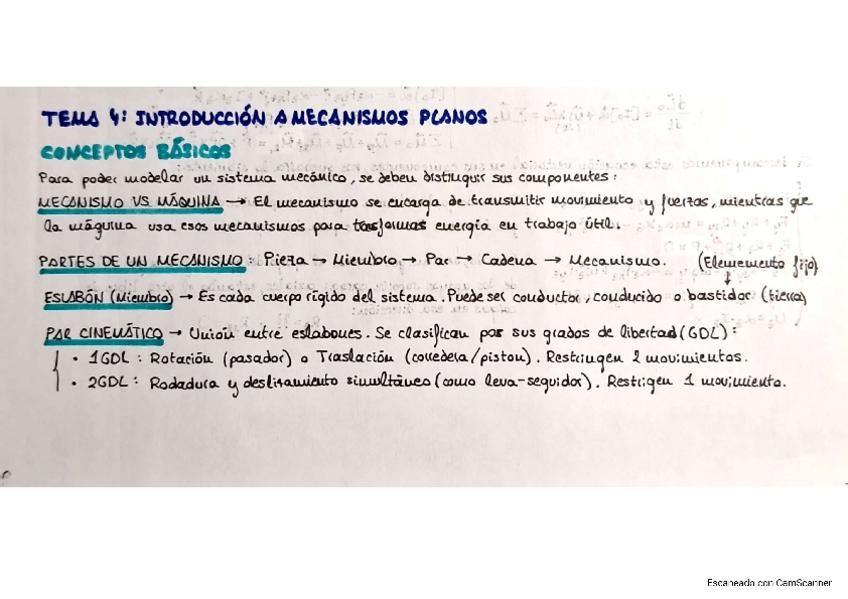 TEMA 4: INTRODUCCIÓN A MECANISMOS PLANOS
CONCEPTOS BÁSICOS
Para poder modelar un sistema mecánico, se deben distinguir sus componentes:
MECANISMO VS MÁQUINA → El mecanismo se encarga de transmitir movimiento y fuerzas, mientras que
la máquina usa esos mecanismos para transformar energía en trabajo útil.
PARTES DE UN MECANISMO: Pieza → Miembro → Par → Cadena → Mecanismo. (Elemento fijo)
ESLABÓN (Miembro) → Es cada cuerpo rígido del sistema. Puede ser conductor, conducido o bastidor (tierra)
PAR CINEMÁTICO → Unión entre eslabones. Se clasifican por sus grados de libertad (GDL):
• 1GDL: Rotación (pasador) o Traslación (corredera/piston). Restringen 2 movimientos.
• 2GDL: Rodadura y deslizamiento simultáneo (como leva-seguidor). Restrigen 1 movimiento.
Escaneado con CamScanner